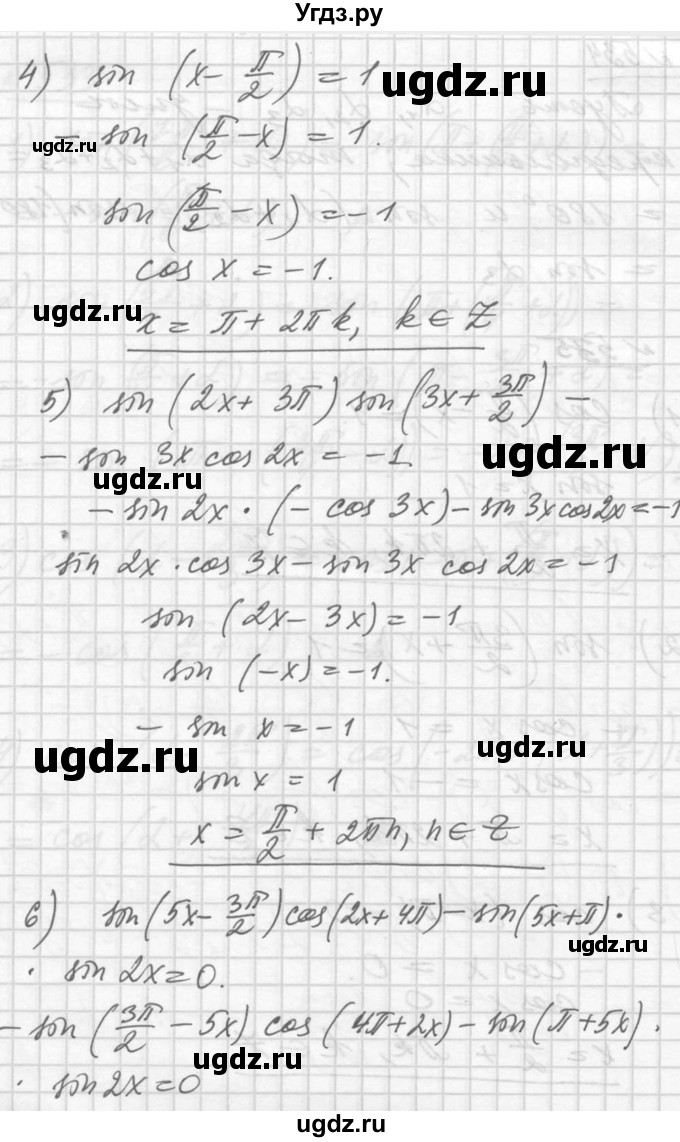 Угдз.ру
4) sin (x - π/2) = 1
ugdz.ru
ugdz.ru
- sin (π/2 - x) = 1.
sin (π/2 - x) = -1
ugdz.ru
cos x = -1.
ugdz.ru
x = π + 2πk, k ∈ Z
5) sin (2x + 3π) sin (3x + 3π/2) -
ugdz.ru
- sin 3x cos 2x = -1.
ugdz.ru
- sin 2x · (- cos 3x) - sin 3x cos 2x = -1
sin 2x · cos 3x - sin 3x cos 2x = -1
sin (2x - 3x) = -1
sin (-x) = -1.
- sin x = -1
ugdz.ru
ugdz.ru
sin x = 1
x = π/2 + 2πn, n ∈ Z
6) sin (5x - 3π/2) cos (2x + 4π) - sin (5x + π) ·
ugdz.ru
· sin 2x = 0.
- sin (3π/2 - 5x) cos (4π + 2x) - sin (π + 5x) ·
ugdz.ru
· sin 2x = 0
ugdz.ru